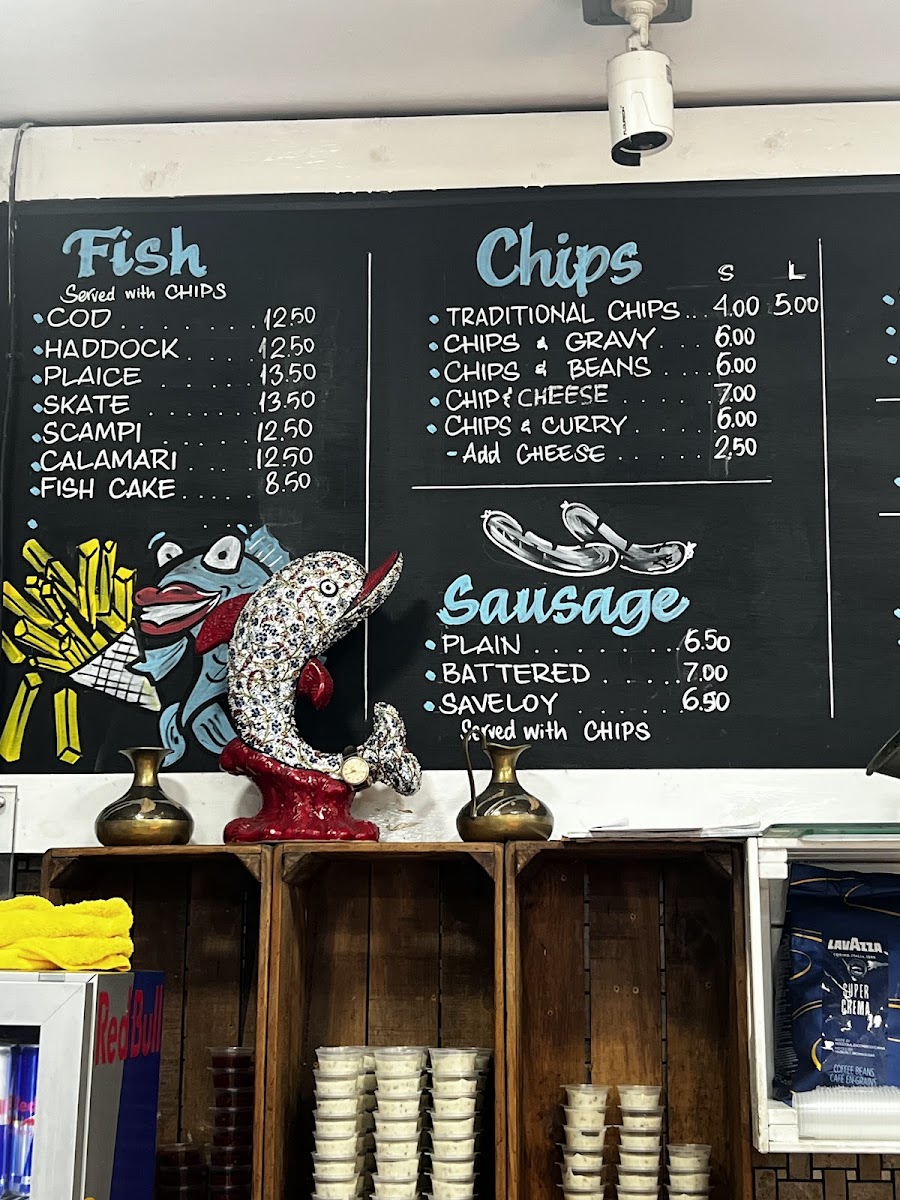 Fish
Served with CHIPS
COD . . . . . . . . 12.50
HADDOCK . . . . . 12.50
PLAICE . . . . . . . 13.50
SKATE . . . . . . . 13.50
SCAMPI . . . . . . 12.50
CALAMARI . . . . 12.50
FISH CAKE . . . . . 8.50
Chips
S L
TRADITIONAL CHIPS . . . 4.00 5.00
CHIPS & GRAVY . . . . 6.00
CHIPS & BEANS . . . . 6.00
CHIP & CHEESE . . . . . . 7.00
CHIPS & CURRY . . . . . 6.00
- Add CHEESE . . . . . . 2.50
Sausage
PLAIN . . . . . . . . 6.50
BATTERED . . . . . 7.00
SAVELOY . . . . . . 6.50
Served with CHIPS
Red Bull
LAVAZZA
TORINO, ITALIA, 1895
SUPER
CREMA
COFFEE BEANS
CAFÉ EN GRAINS